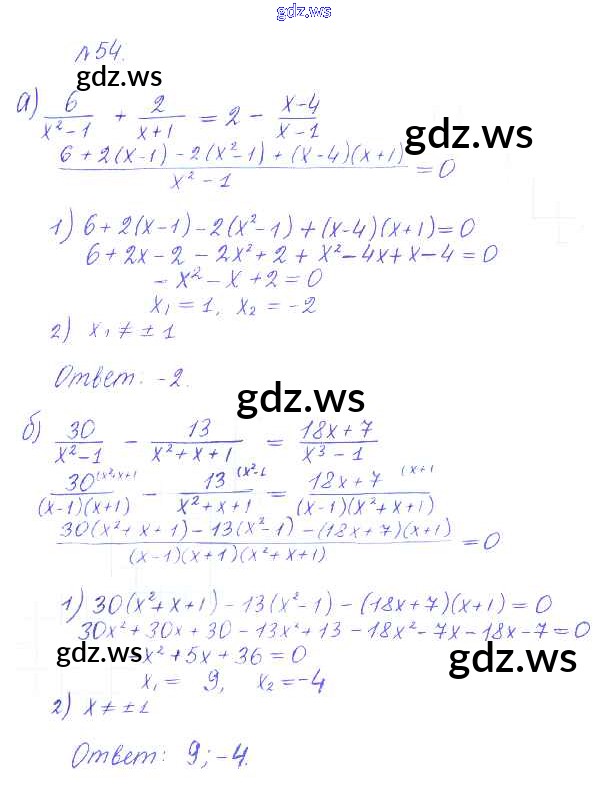 gdz.ws
№54.
gdz.ws
а) 6/(x²-1) + 2/(x+1) = 2 - (x-4)/(x-1)
gdz.ws
(6+2(x-1)-2(x²-1)+(x-4)(x+1))/(x²-1) = 0
1) 6+2(x-1)-2(x²-1)+(x-4)(x+1)=0
6+2x-2-2x²+2+x²-4x+x-4=0
-x²-x+2=0
x₁=1, x₂=-2
2) x₁≠±1
Ответ: -2.
gdz.ws
б) 30/(x²-1) - 13/(x²+x+1) = (18x+7)/(x³-1)
30^(x²+x+1/((x-1)(x+1)) - 13^(x²-1/(x²+x+1) = (18x+7)^(x+1/((x-1)(x²+x+1))
(30(x²+x+1)-13(x²-1)-(18x+7)(x+1))/((x-1)(x+1)(x²+x+1)) = 0
1) 30(x²+x+1)-13(x²-1)-(18x+7)(x+1)=0
30x²+30x+30-13x²+13-18x²-7x-18x-7=0
gdz.ws
-x²+5x+36=0
gdz.ws
x₁= 9, x₂=-4
2) x≠±1
Ответ: 9; -4.